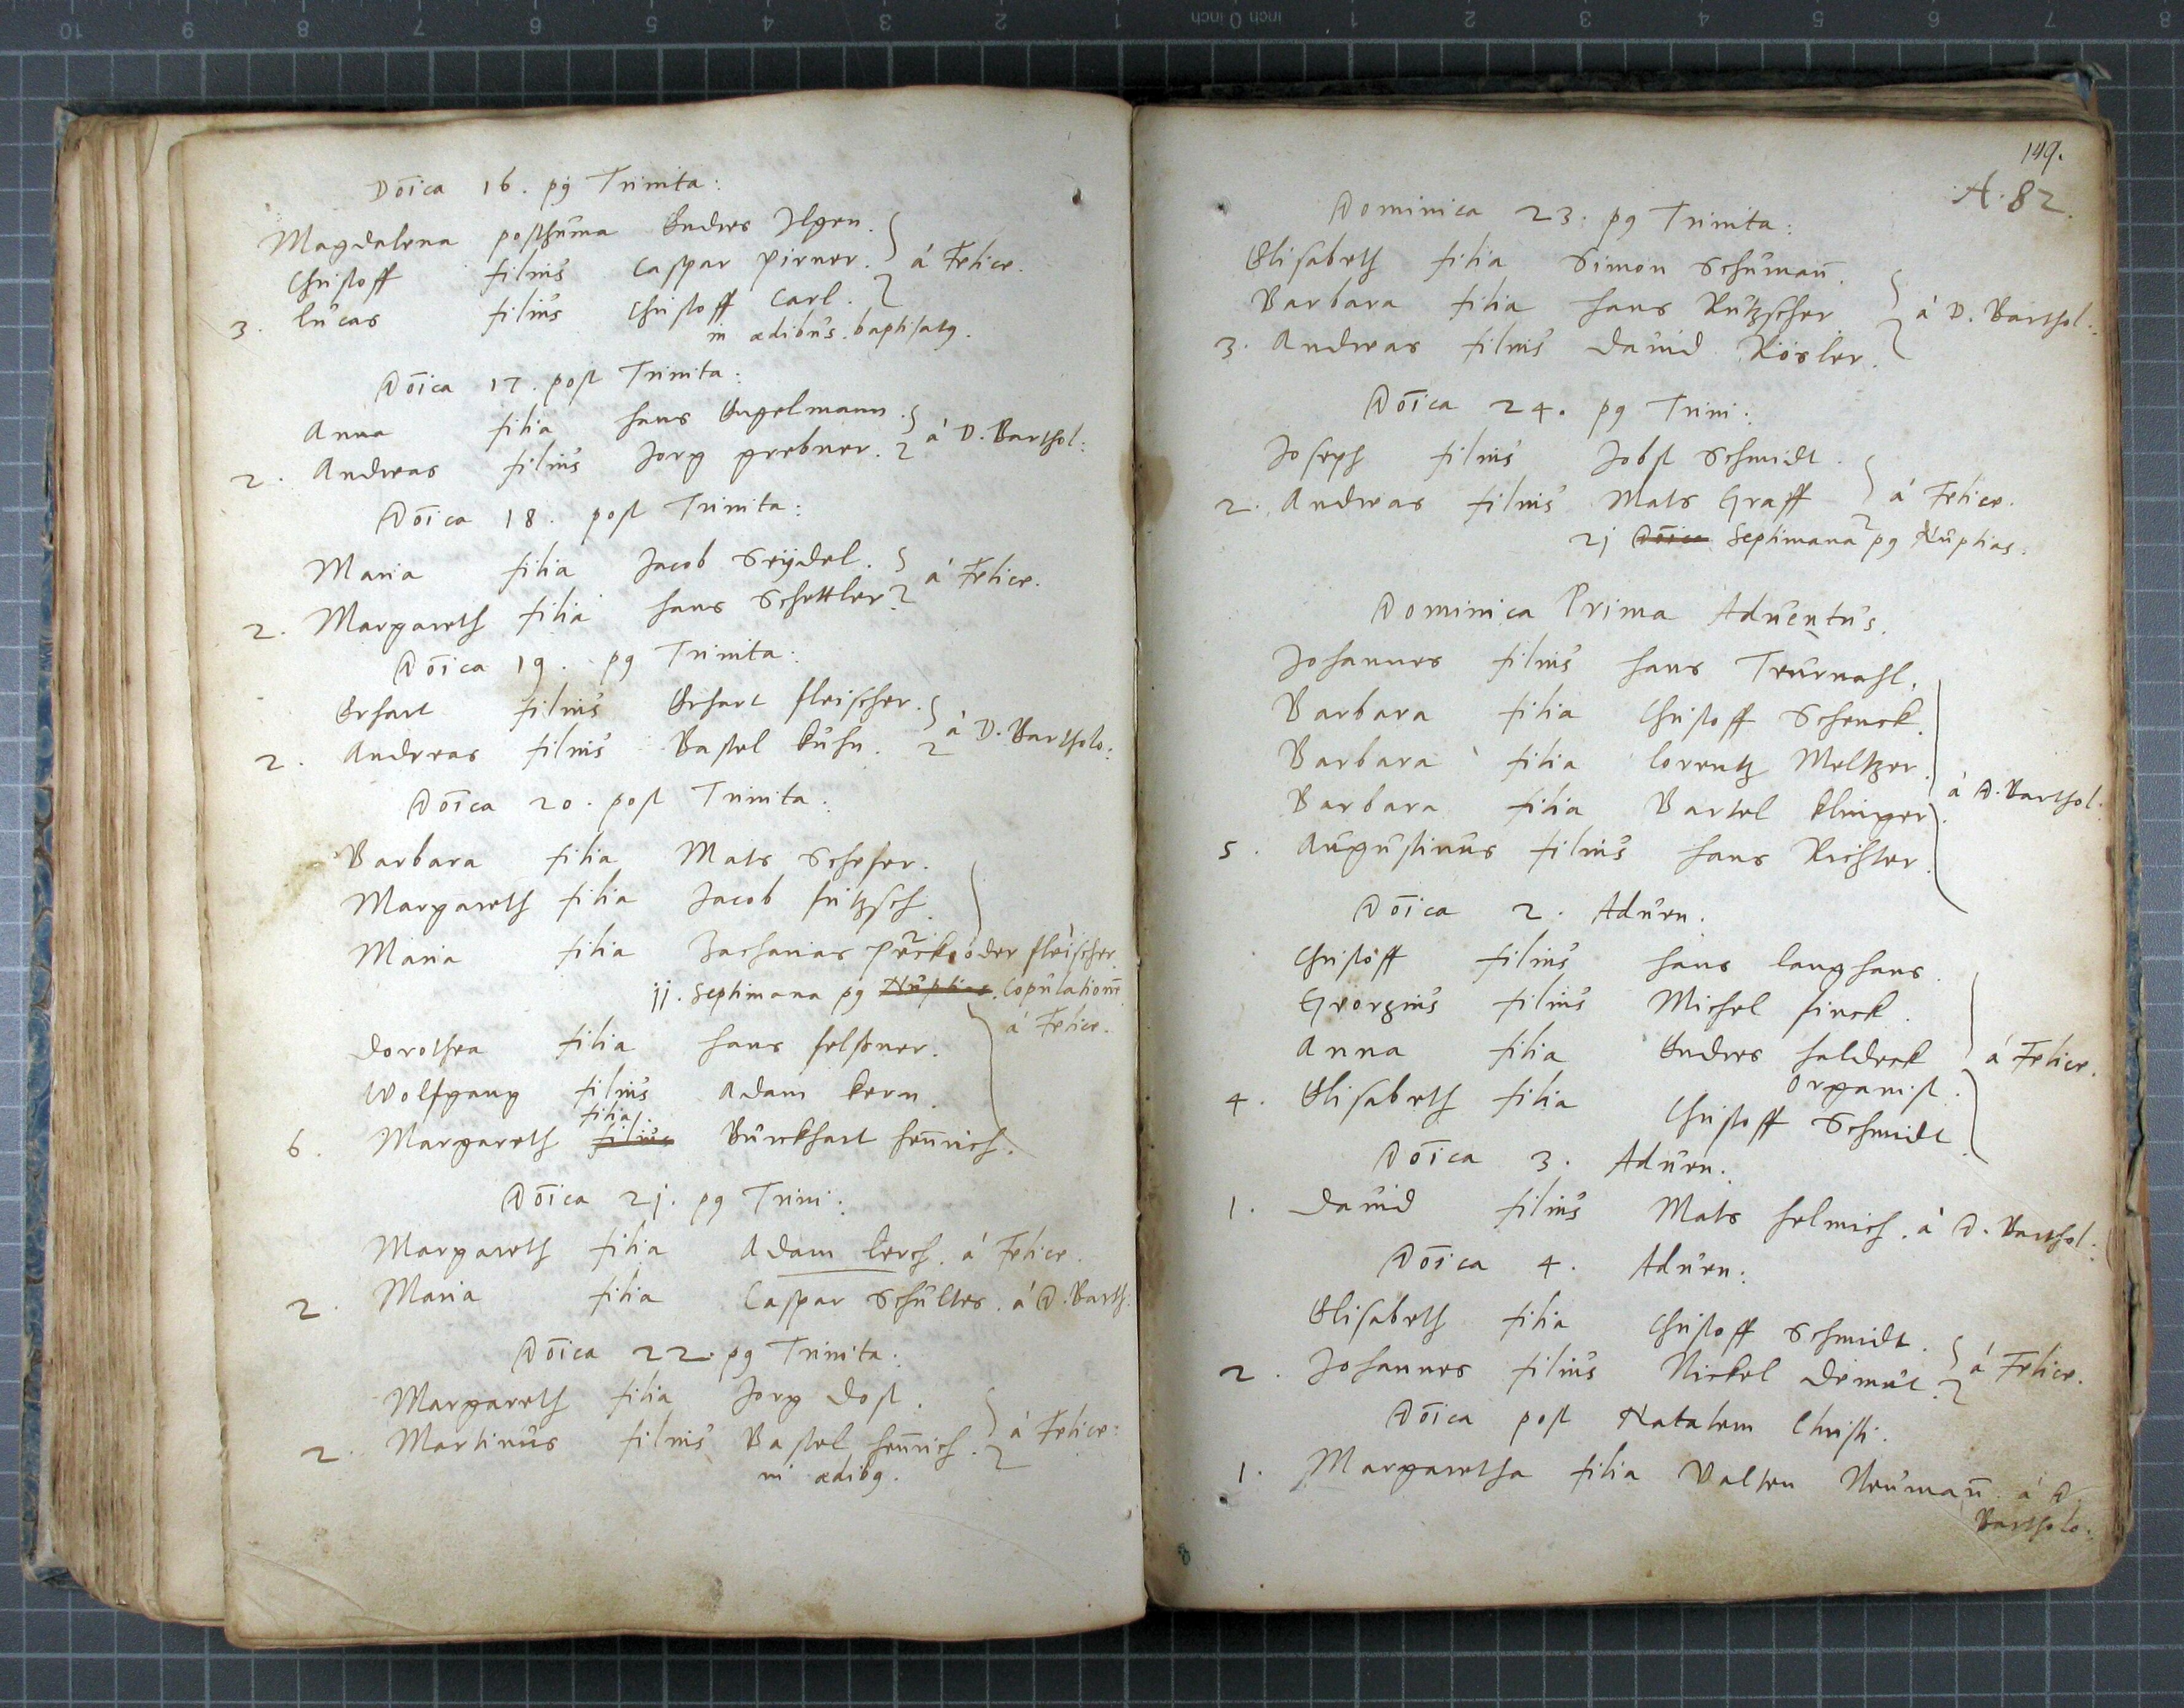 Dōica 16. pg Trinita:
Magdalena posthuma Endres Ilgen.
Christoff filius Caspar Pirner. á Felice.
3. Lucas filius Christoff Carl.
in ædibus baptisatg.
Dōica 17. post Trinita:
Anna filia Hans Engelmann.
2. Andreas filius Jorg grebner. á D. Barthol:
Dōica 18. post Trinita:
Maria filia Jacob Seÿdel. á Felice.
2. Margareth filia Hans Schettler
Dōica 19. pg Trinita:
Erhart filius Erhart fleischer.
2. Andreas filius Bastel Kuhn. á D. Bartholo:
Dōica 20. post Trinita:
Barbara filia Mats Schefer.
Margareth filia Jacob fritzsch.
Maria filia Zacharias Peck oder fleischer
jj. Septimana pg Nuptias. Copulationē
á Felice.
Dorothea filia Hans
Wolfgang filius Adam Kern.
filia
6. Margareth filius Burckhart Henrich.
Dōica 2j. pg Trini:
Margareth filia Adam Lerch. á Felice.
2. Maria filia Caspar Schultes. á D. Barth:
Dōica 22. pg Trinita:
Margareth filia Jorg Dost.
2. Martinus filius Bastel Henrich. á Felice:
in ædibg.
149.
A. 82.
Dominica 23. pg Trinita:
Elisabeth filia Simon Schumañ.
Barbara filia Hans Rutzscher á D. Barthol:
3. Andreas filius David Rösler.
Dōica 24. pg Trini:
Joseph filius Jobst Schmidt.
2. Andreas filius Mats Graff á Felice.
2j Dōica Septimana pg Nuptias.
Dominica Prima Adventus.
Johannes filius Hans
Barbara filia Christoff Schenck.
Barbara filia Lorentz Meltzer.
Barbara filia Bartel Klinger. á D. Barthol:
5. Augustinus filius Hans Richter.
Dōica 2. Aduen.
Christoff filius Hans Langhans.
Georgius filius Michel finck.
Anna filia Endres Haldeck á Felice.
Organist.
4. Elisabeth filia Christoff Schmidt
Dōica 3. Aduen.
1. David filius Mats Helmich. á D. Barthol:
Dōica 4. Aduen:
Elisabeth filia Christoff Schmidt.
2. Johannes filius Nickel Demut. á Felice.
Dōica post Natalem Christi.
1. Margaretha filia Valten Neumañ á D.
Bartholo.